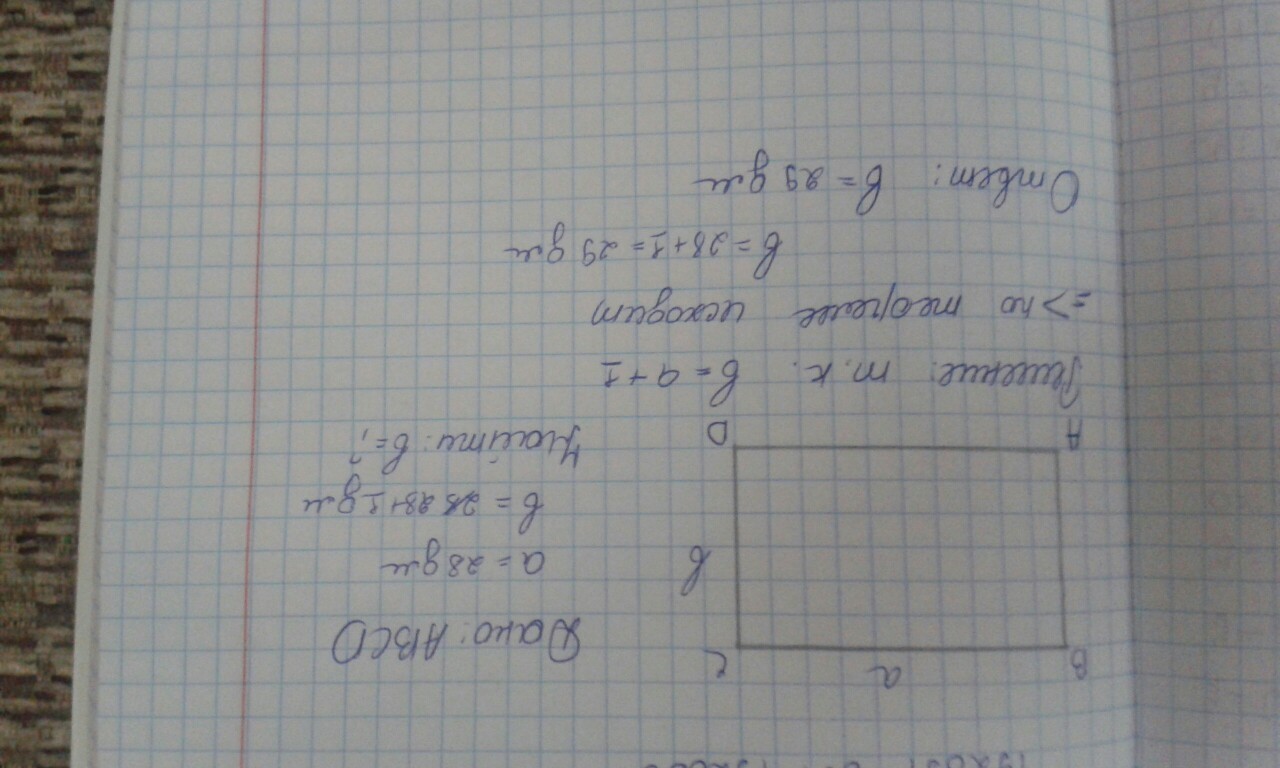 B a C
Дано: ABCD
a = 28 дм
b
b = 28+1 дм
A D
Найти: b=?
Решение: т.к. b = a+1
=> по теореме исходит
b = 28+1 = 29 дм
Ответ: b = 29 дм